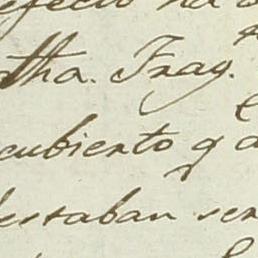 efecto ha
tha. Frag.
cubierto q
estaban ser